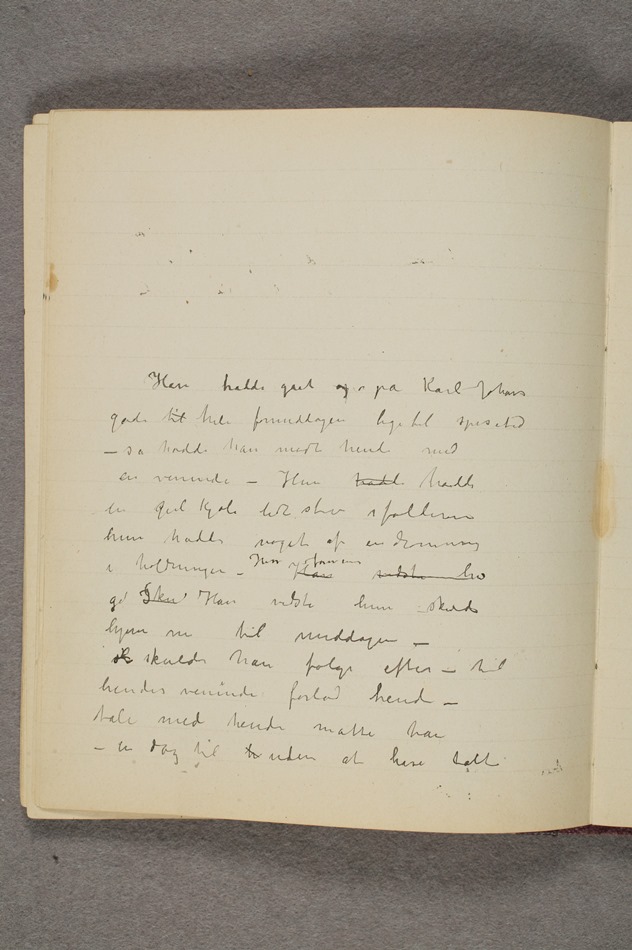 Han hadde gået op pa Karl Johans
gade til hele formiddagen lige til spisetid
– sa hadde han mødt hende med
en veninde – Hun hadde hadde
en gul kjole lidt stiv i folderne
hun hadde noget af en dronning
i holdningen – Han vidste
gå Sku Han vidste hun skulde
hjem nu til middagen –
skulde han følge efter – til
hendes veninde forlod hende –
tale med hende matte han
– en dag til uden at have talt